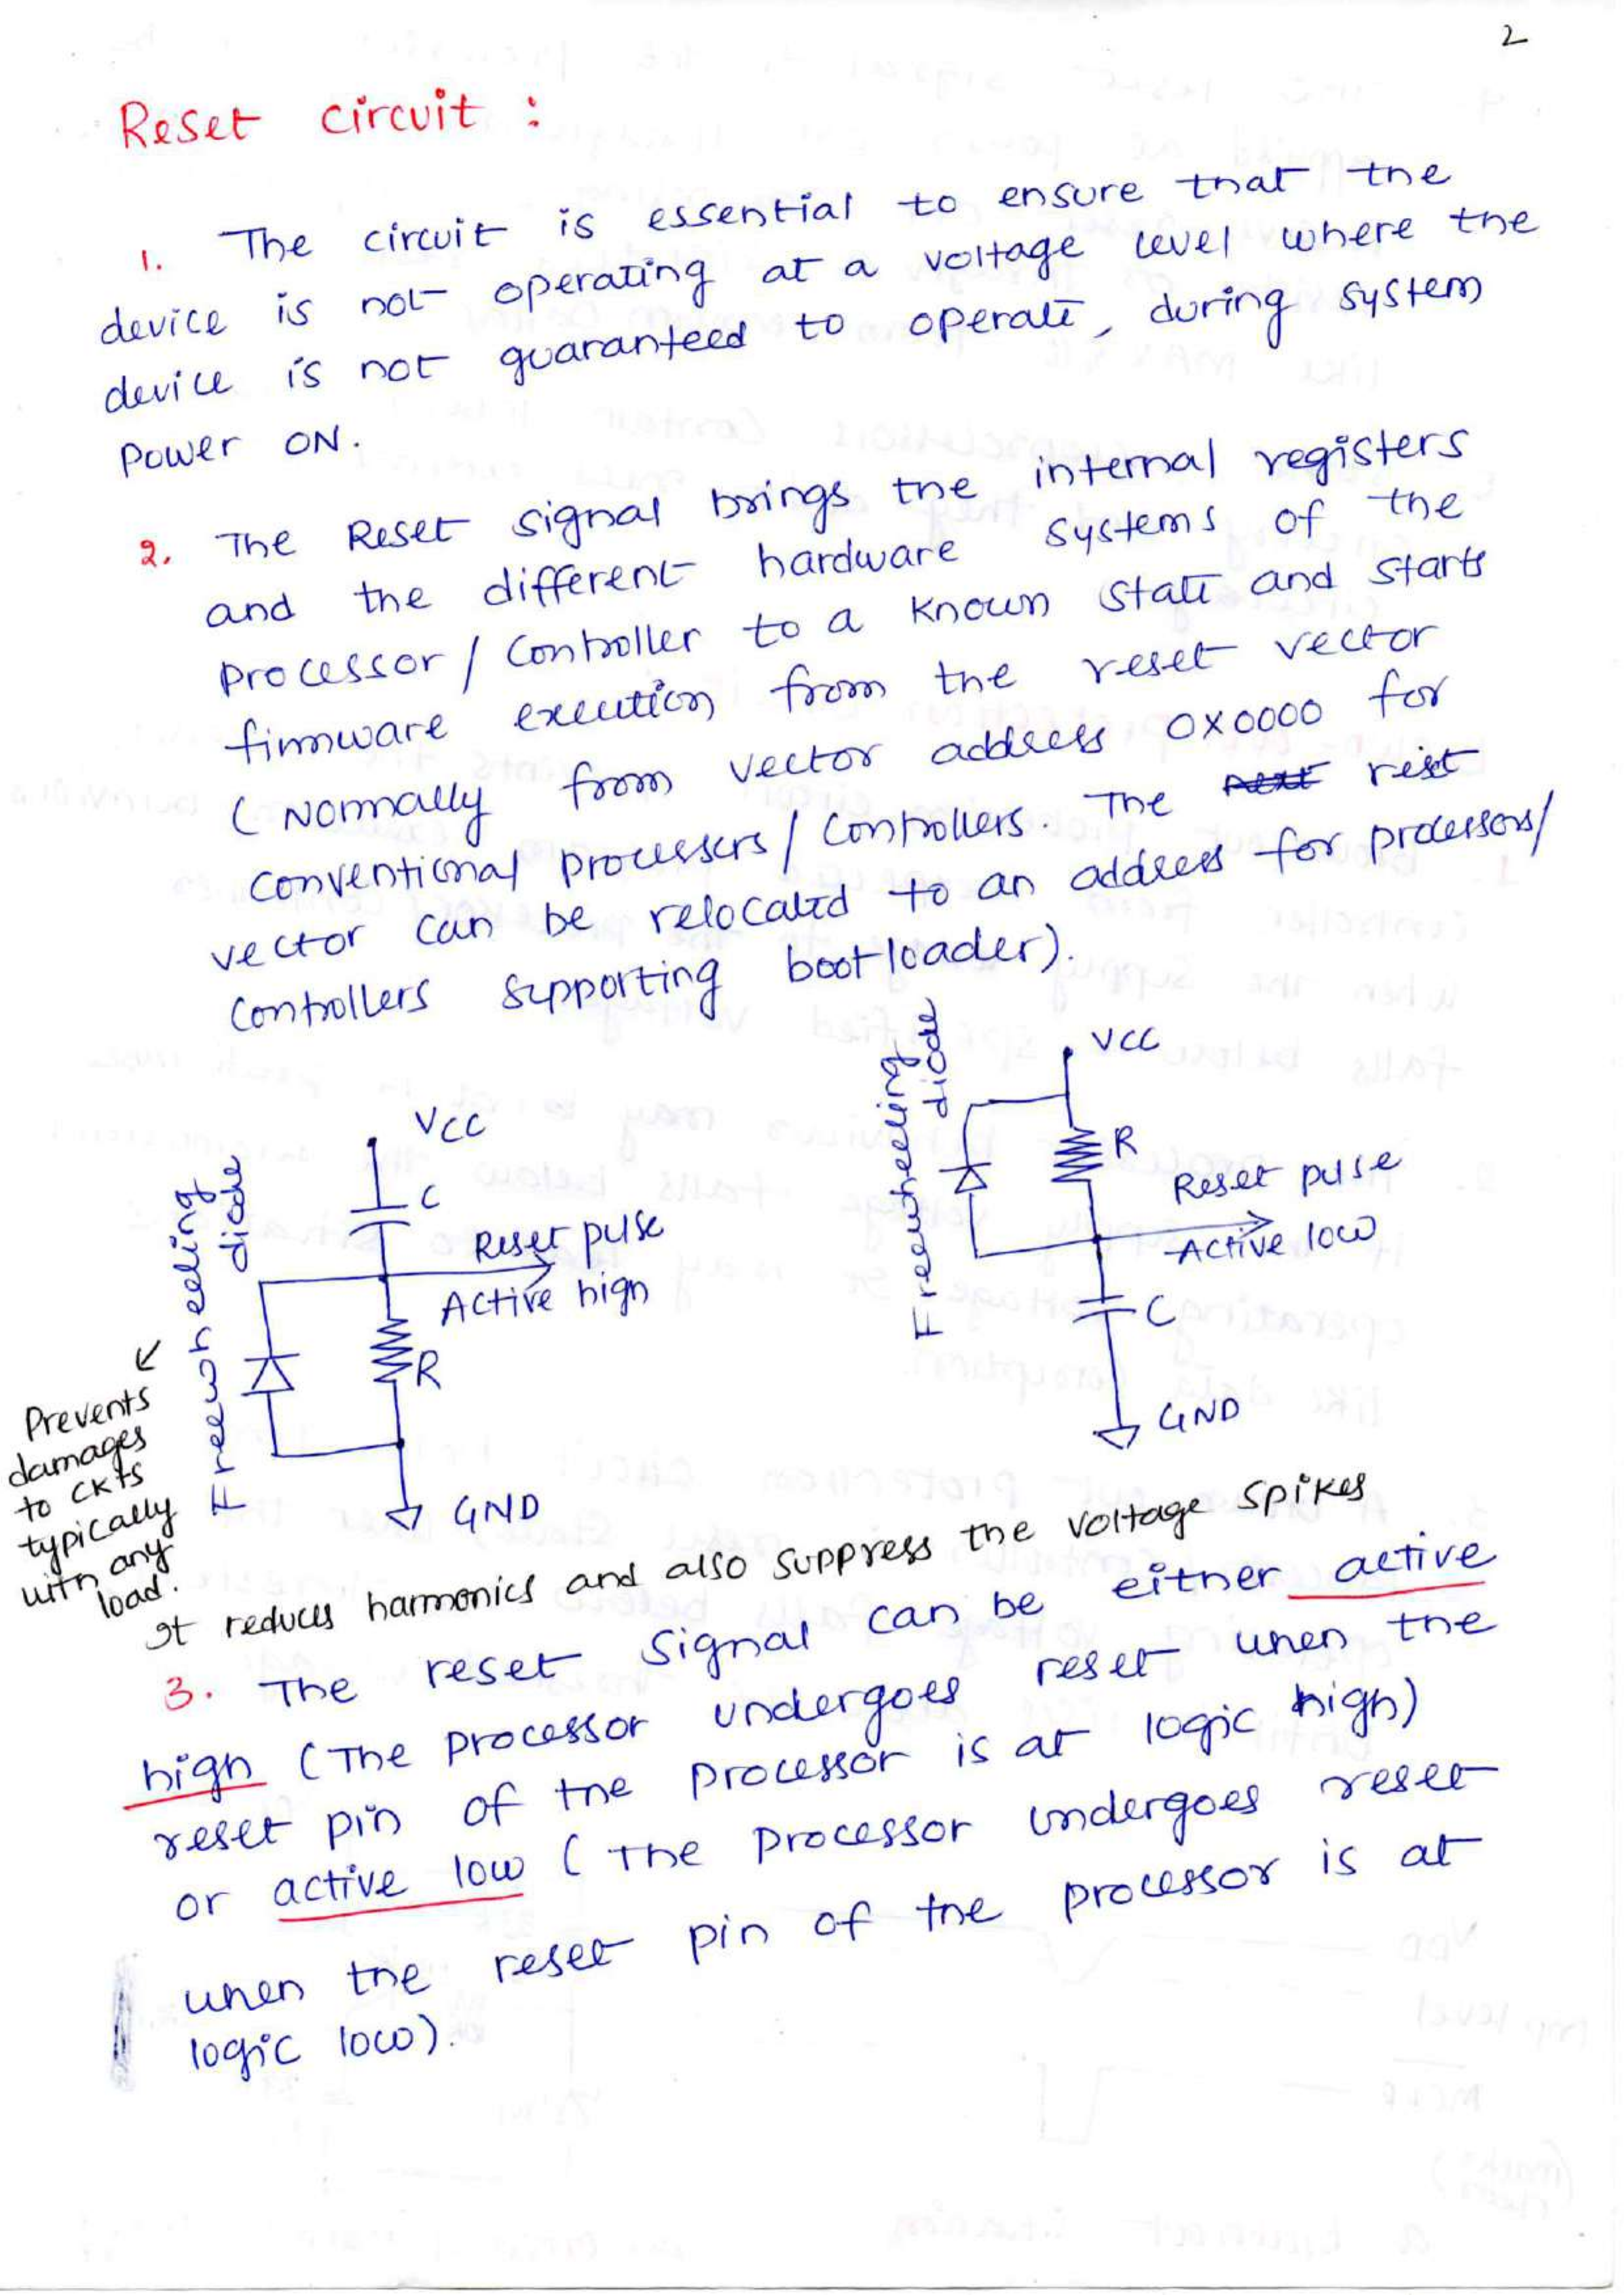 2
Reset circuit :
1. The circuit is essential to ensure that the
device is not operating at a voltage level where the
device is not guaranteed to operate, during system
Power ON.
2. The Reset signal brings the internal registers
and the different hardware systems of the
processor / controller to a known state and starts
firmware execution from the reset vector
(Normally from vector address 0x0000 for
conventional processers / controllers. The next rest
vector can be relocated to an address for processors/
controllers supporting bootloader).
Freewheeling
diode
VCC
C
Reset pulse
Active high
R
GND
Prevents
damages
to CKTS
typically
with any
load.
Freewheeling
diode
VCC
R
Reset pulse
Active low
C
GND
It reduces harmonics and also suppress the voltage spikes
3. The reset signal can be either active
high (The processor undergoes reset when the
reset pin of the processor is at logic high)
or active low (The processor undergoes reset
when the reset pin of the processor is at
logic low).